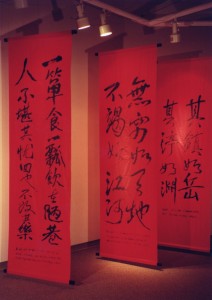 其峙如岳
其渟如淵
無窮如天地
不竭如江河
一簞食一瓢飲在陋巷
人不堪其憂回也不改其樂